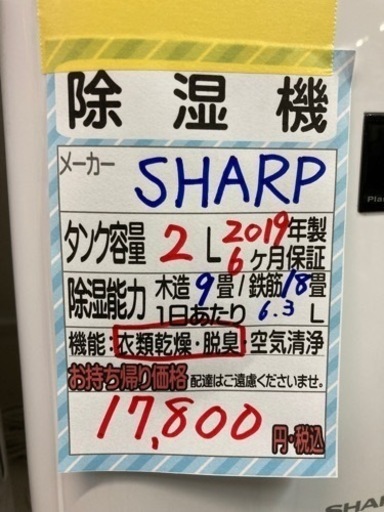 除湿機
メーカー SHARP
タンク容量 2 L 2019年製
6ヶ月保証
除湿能力 木造 9畳 / 鉄筋 18畳
1日あたり 6.3 L
機能：衣類乾燥・脱臭・空気清浄
お持ち帰り価格 配達はご遠慮くださいませ。
17,800 円・税込
Pla
SHA